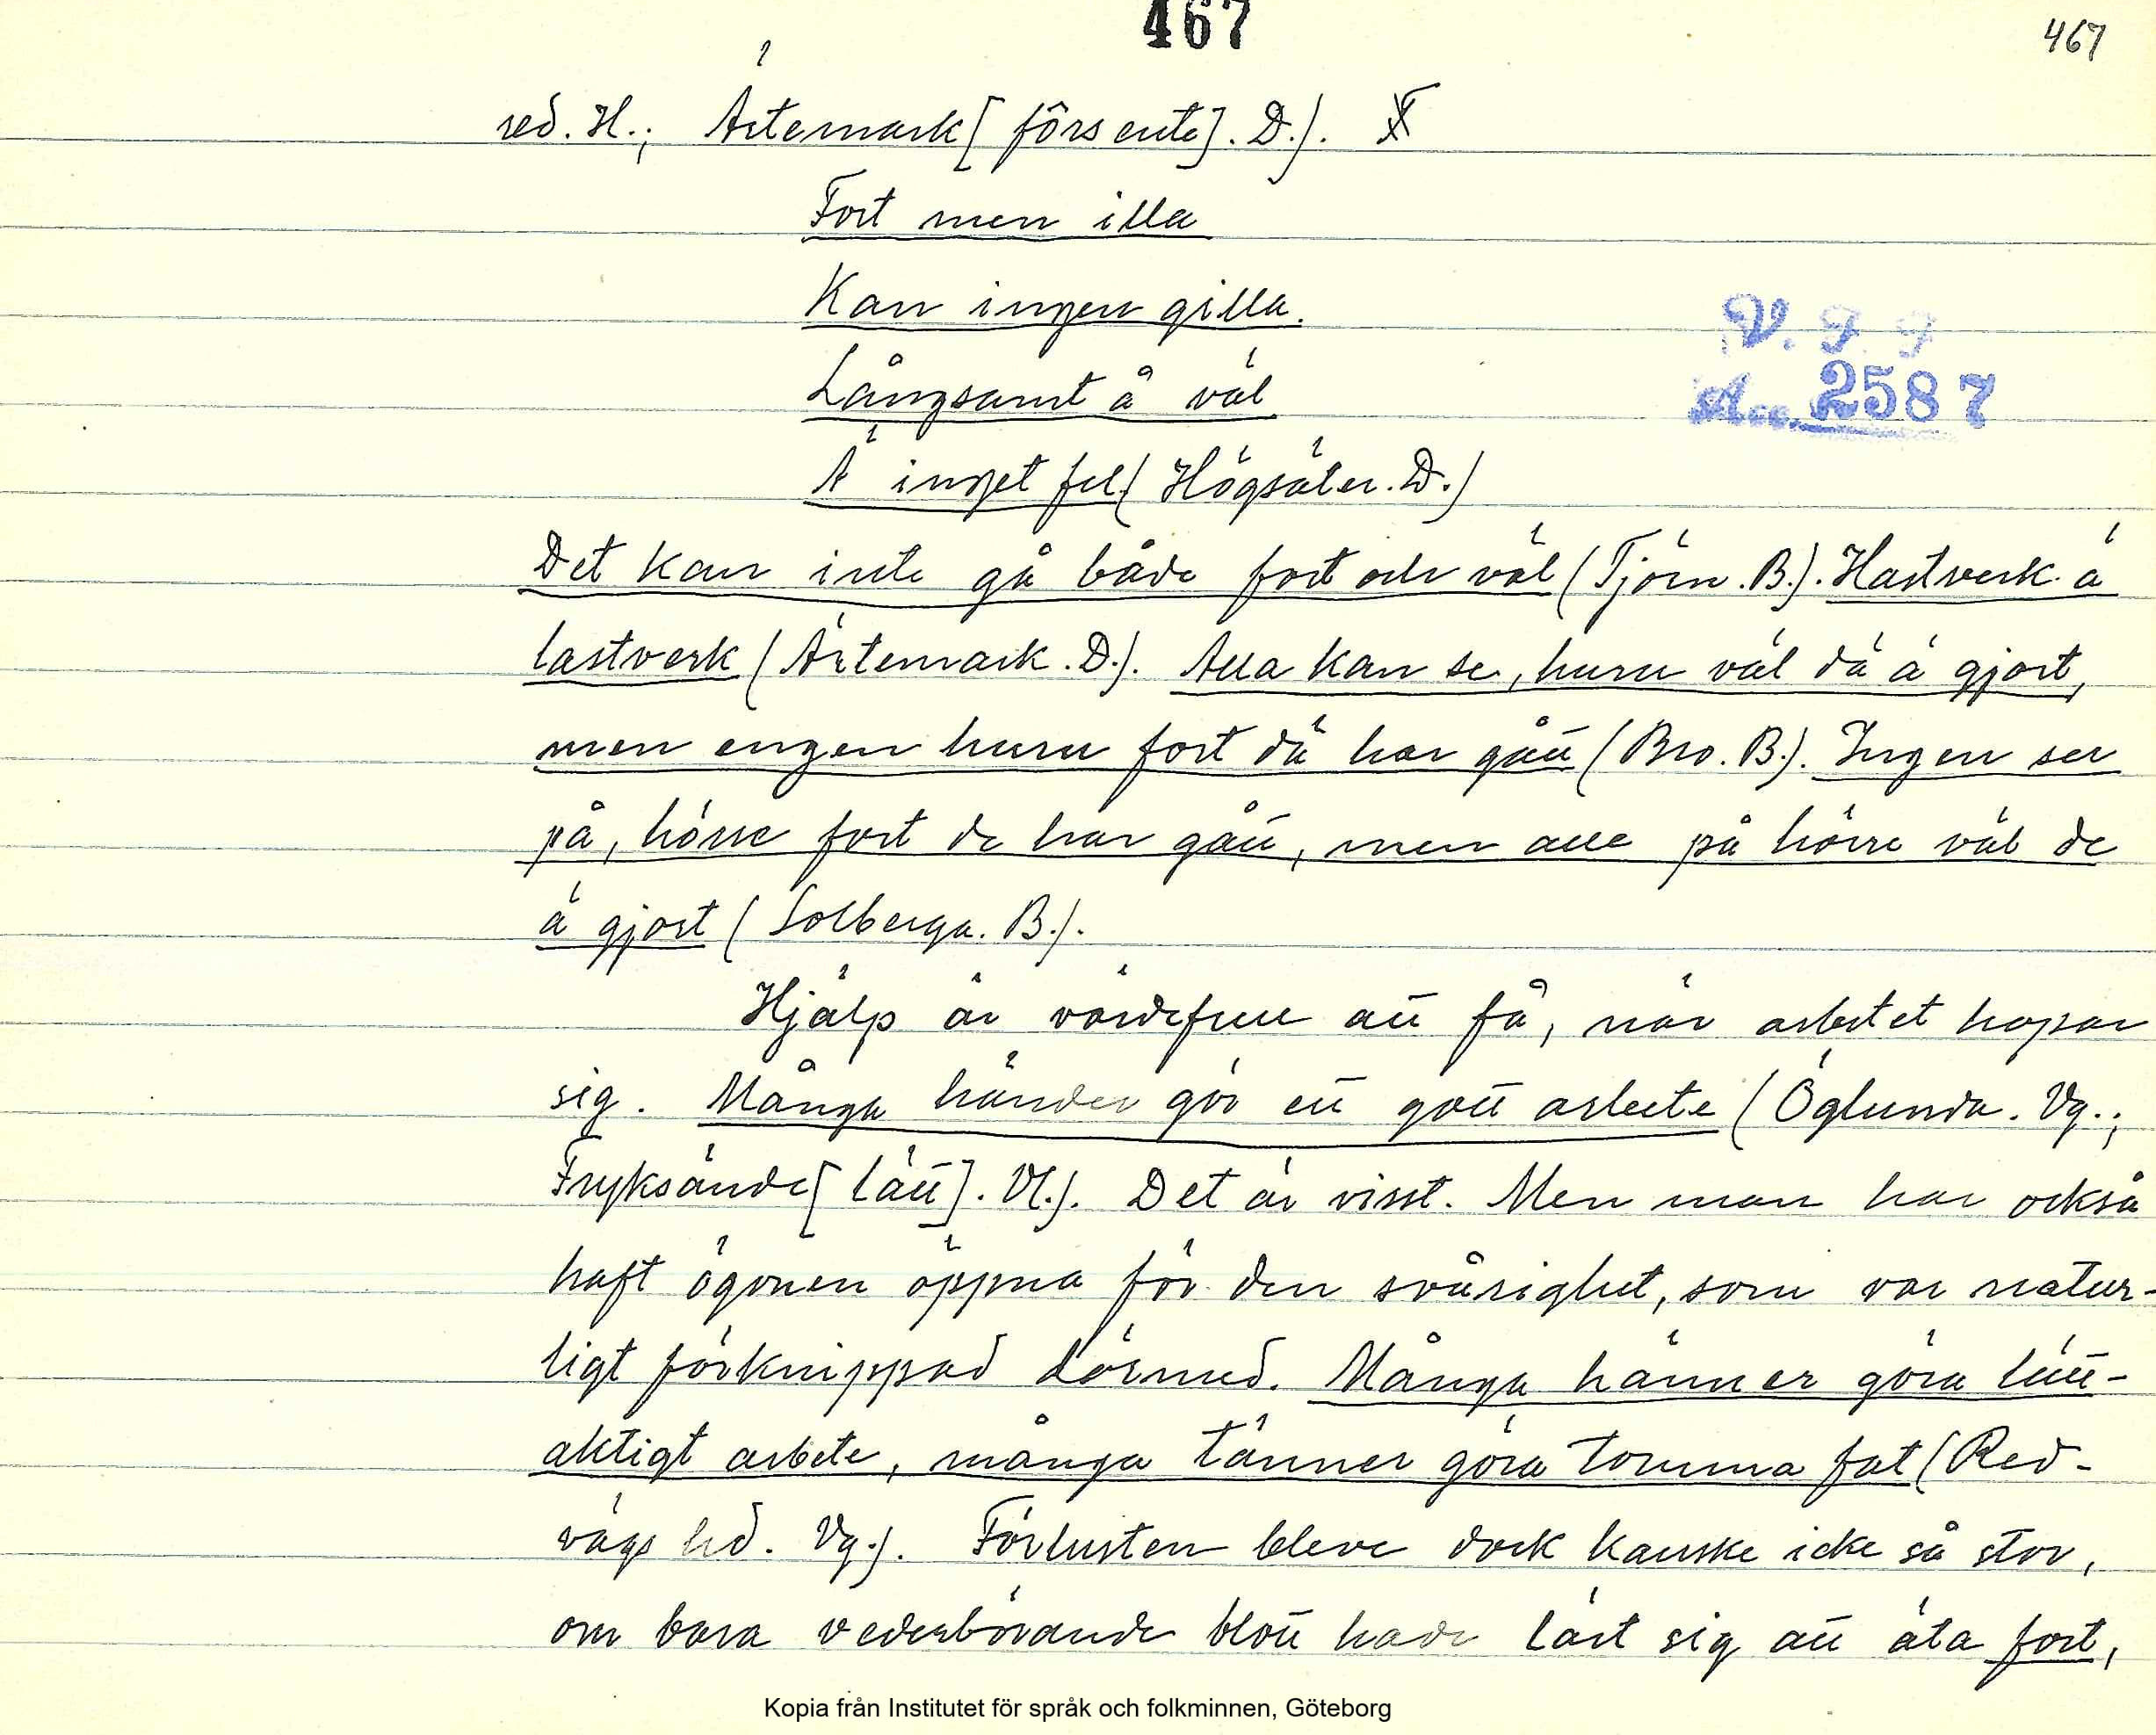 467
467
red. H.; Ärtemark [förs ente]. D.).
Fort men illa
Kan ingen gilla.
Långsamt å väl
Ä inget fel (Högsäter. D.)
V. F. F.
Acc. 2587
Det kan inte gå både fort och väl (Tjörn. B.). Hastverk ä
lastverk (Ärtemark. D.). Alla kan se, huru väl dä ä gjort,
men engen huru fort dä har gått (Bro. B.). Ingen ser
på, hörre fort de har gått, men alle på hörre väl de
ä gjort (Solberga. B.).
Hjälp är värdefull att få, när arbetet hopar
sig. Många händer gör ett gott arbete (Öglunda. Vg.;
Fryksände [lätt]. Vl.). Det är visst. Men man har också
haft ögonen öppna för den svårighet, som var natur-
ligt förknippad därmed. Många hänner göra lätt-
aktigt arbete, många tänner göra tomma fat (Red-
vägs hd. Vg.). Förlusten bleve dock kanske icke så stor,
om bara vederbörande blott hade lärt sig att äta fort,
Kopia från Institutet för språk och folkminnen, Göteborg